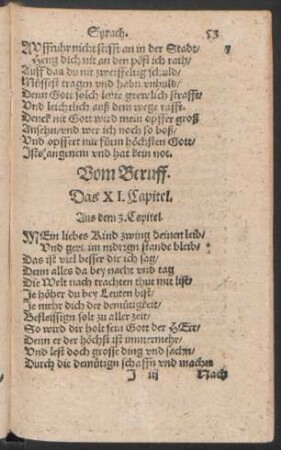 Syrach. 53
Auffruhr nicht stifft an in der Stadt / 7
Heng dich nit an den pöfl ich rath /
Auff das du nit zweifeltig schuld /
Müssest tragen vnd habn vnhuld /
Denn Gott solch leute grewlich strafft
Vnd leichtlich auß dem wege rafft.
Denck nit Gott wird mein opffer groß
Ansehn / vnd wer ich noch so boß /
Vnd opffert nur fürm höchsten Gott /
angenem vnd hat kein not.
Vom Beruff.
Das XI. Capitel.
Aus dem 3. Capitel
MEin liebes Kind zwing deinen leib /
Vnd gern im nidrign stande bleib /
Das ist viel besser dir ich sag /
Denn alles da bey nacht vnd tag
Die Welt nach trachten thut mit list /
Je höher du bey Leuten bist /
Je mehr dich der demütigkeit /
Befleissign solt zu aller zeit /
So wird dir holt sein Gott der HErr /
Denn er der höchst ist immermehr /
Vnd lest doch grosse ding vnd sachn /
Durch die demütign schaffn vnd machn
J iij Nach